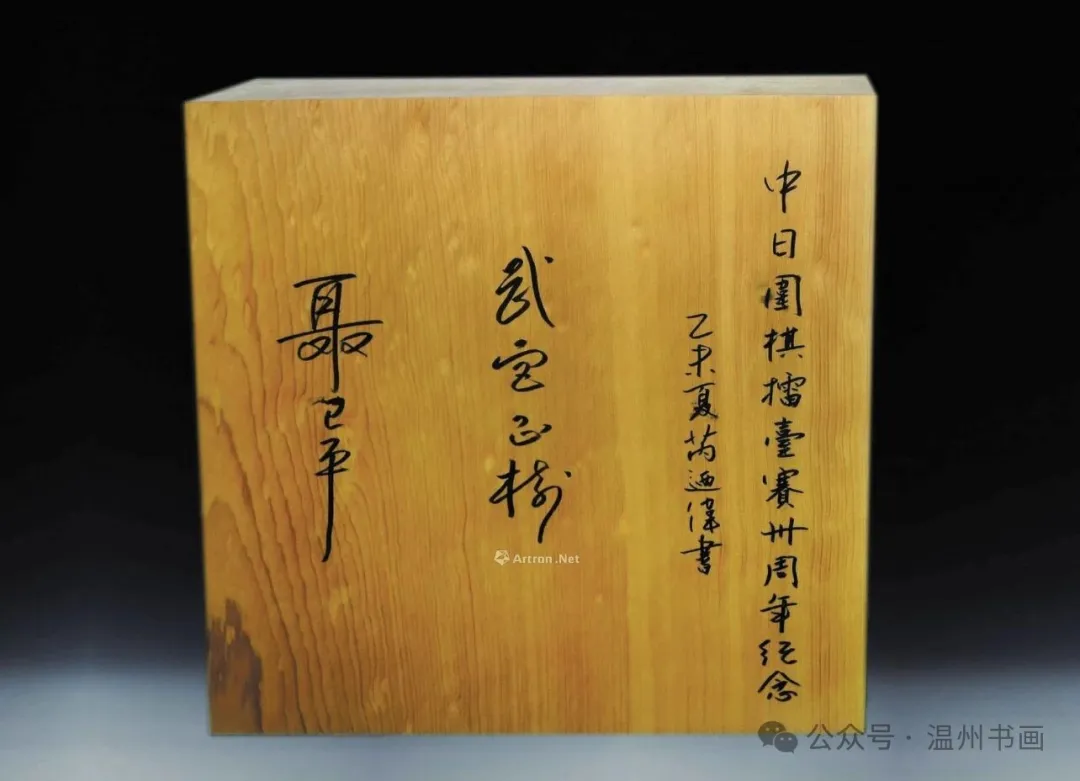 中日圍棋擂臺賽卅周年纪念
乙未夏芮迺偉書
武宮正樹
聂卫平
Artron.Net
公众号·温州书画